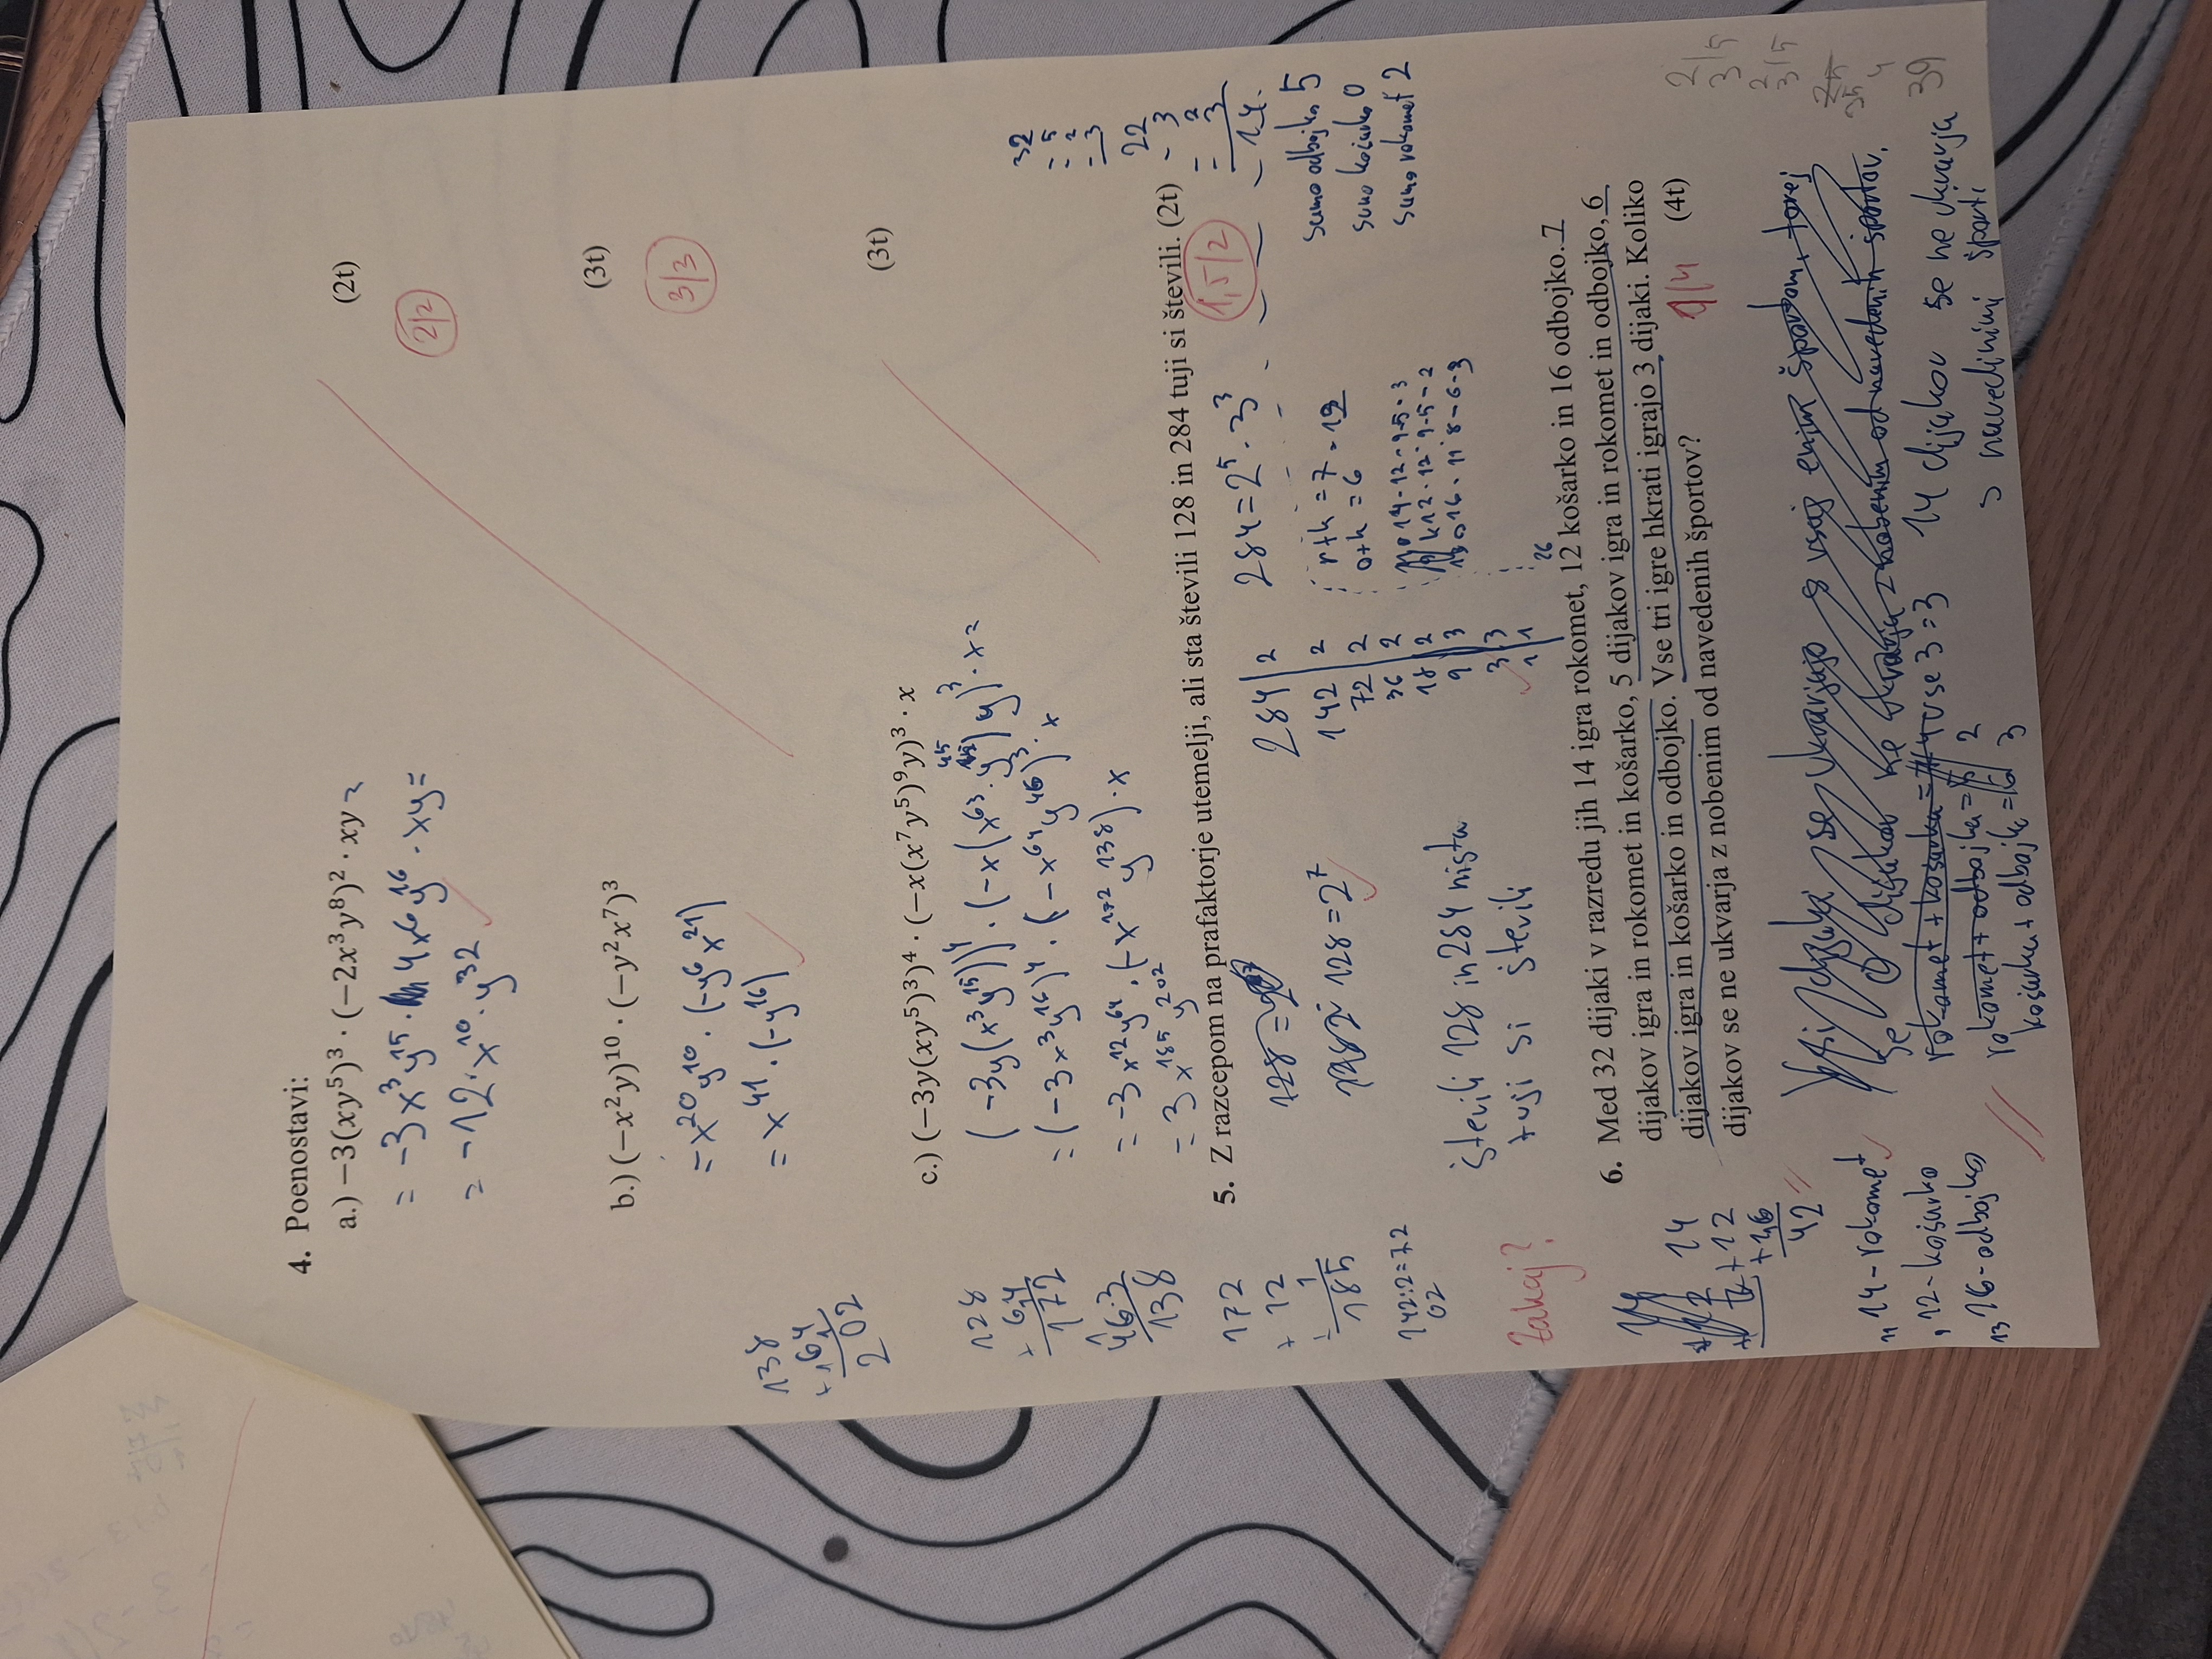 4. Poenostavi:
a.) −3(xy⁵)³ · (−2x³y⁸)² · xy =
(2t)
= -3x³y¹⁵ · 4x⁶y¹⁶ · xy =
2/2
= -12 · x¹⁰ · y³²
b.) (−x²y)¹⁰ · (−y²x⁷)³
(3t)
= x²⁰y¹⁰ · (-y⁶x²¹)
3/3
= x⁴¹ · (-y¹⁶)
138
+ 64
202
c.) (−3y(xy⁵)³)⁴ · (−x(x⁷y⁵)⁹y)³ · x
(3t)
(-3y(x³y¹⁵))⁴ · (-x(x⁶³ · y⁴⁵)y)³ · x =
= (-3x³y¹⁶)⁴ · (-x⁶⁴y⁴⁶)³ · x
= -3x¹²y⁶⁴ · (-x¹⁷²y¹³⁸) · x
= 3x¹⁸⁵y²⁰²
128
+ 64
172
46·3
138
172
+ 12
+ 1
185
142:2=72
02
32
- 5
- 2
- 3
22
- 3
- 2
- 3
14
5. Z razcepom na prafaktorje utemelji, ali sta števili 128 in 284 tuji si števili. (2t)
1,5/2
128 = 2⁷
284 | 2
142 | 2
72 | 2
36 | 2
18 | 2
9 | 3
3 | 3
1 | 1
284 = 2⁵ · 3³
r+k = 7
o+k = 6
samo odbojko 5
samo košarko 0
samo rokomet 2
števili 128 in 284 nista
tuji si števili
Zakaj?
6. Med 32 dijaki v razredu jih 14 igra rokomet, 12 košarko in 16 odbojko. 7
dijakov igra in rokomet in košarko, 5 dijakov igra in rokomet in odbojko, 6
dijakov igra in košarko in odbojko. Vse tri igre hkrati igrajo 3 dijaki. Koliko
dijakov se ne ukvarja z nobenim od navedenih športov?
(4t)
1/4
14
+12
+16
42
Vsi dijaki se ukvarjajo s vsaj enim športom, torej
se 0 dijakov ne ukvarja z nobenim od navedenih športov.
14 - rokomet
12 - košarko
16 - odbojko
rokomet + košarka = 4 vse 3 = 3
rokomet + odbojka = 2
košarka + odbojka = 3
14 dijakov se ne ukvarja
z navedinimi športi
39